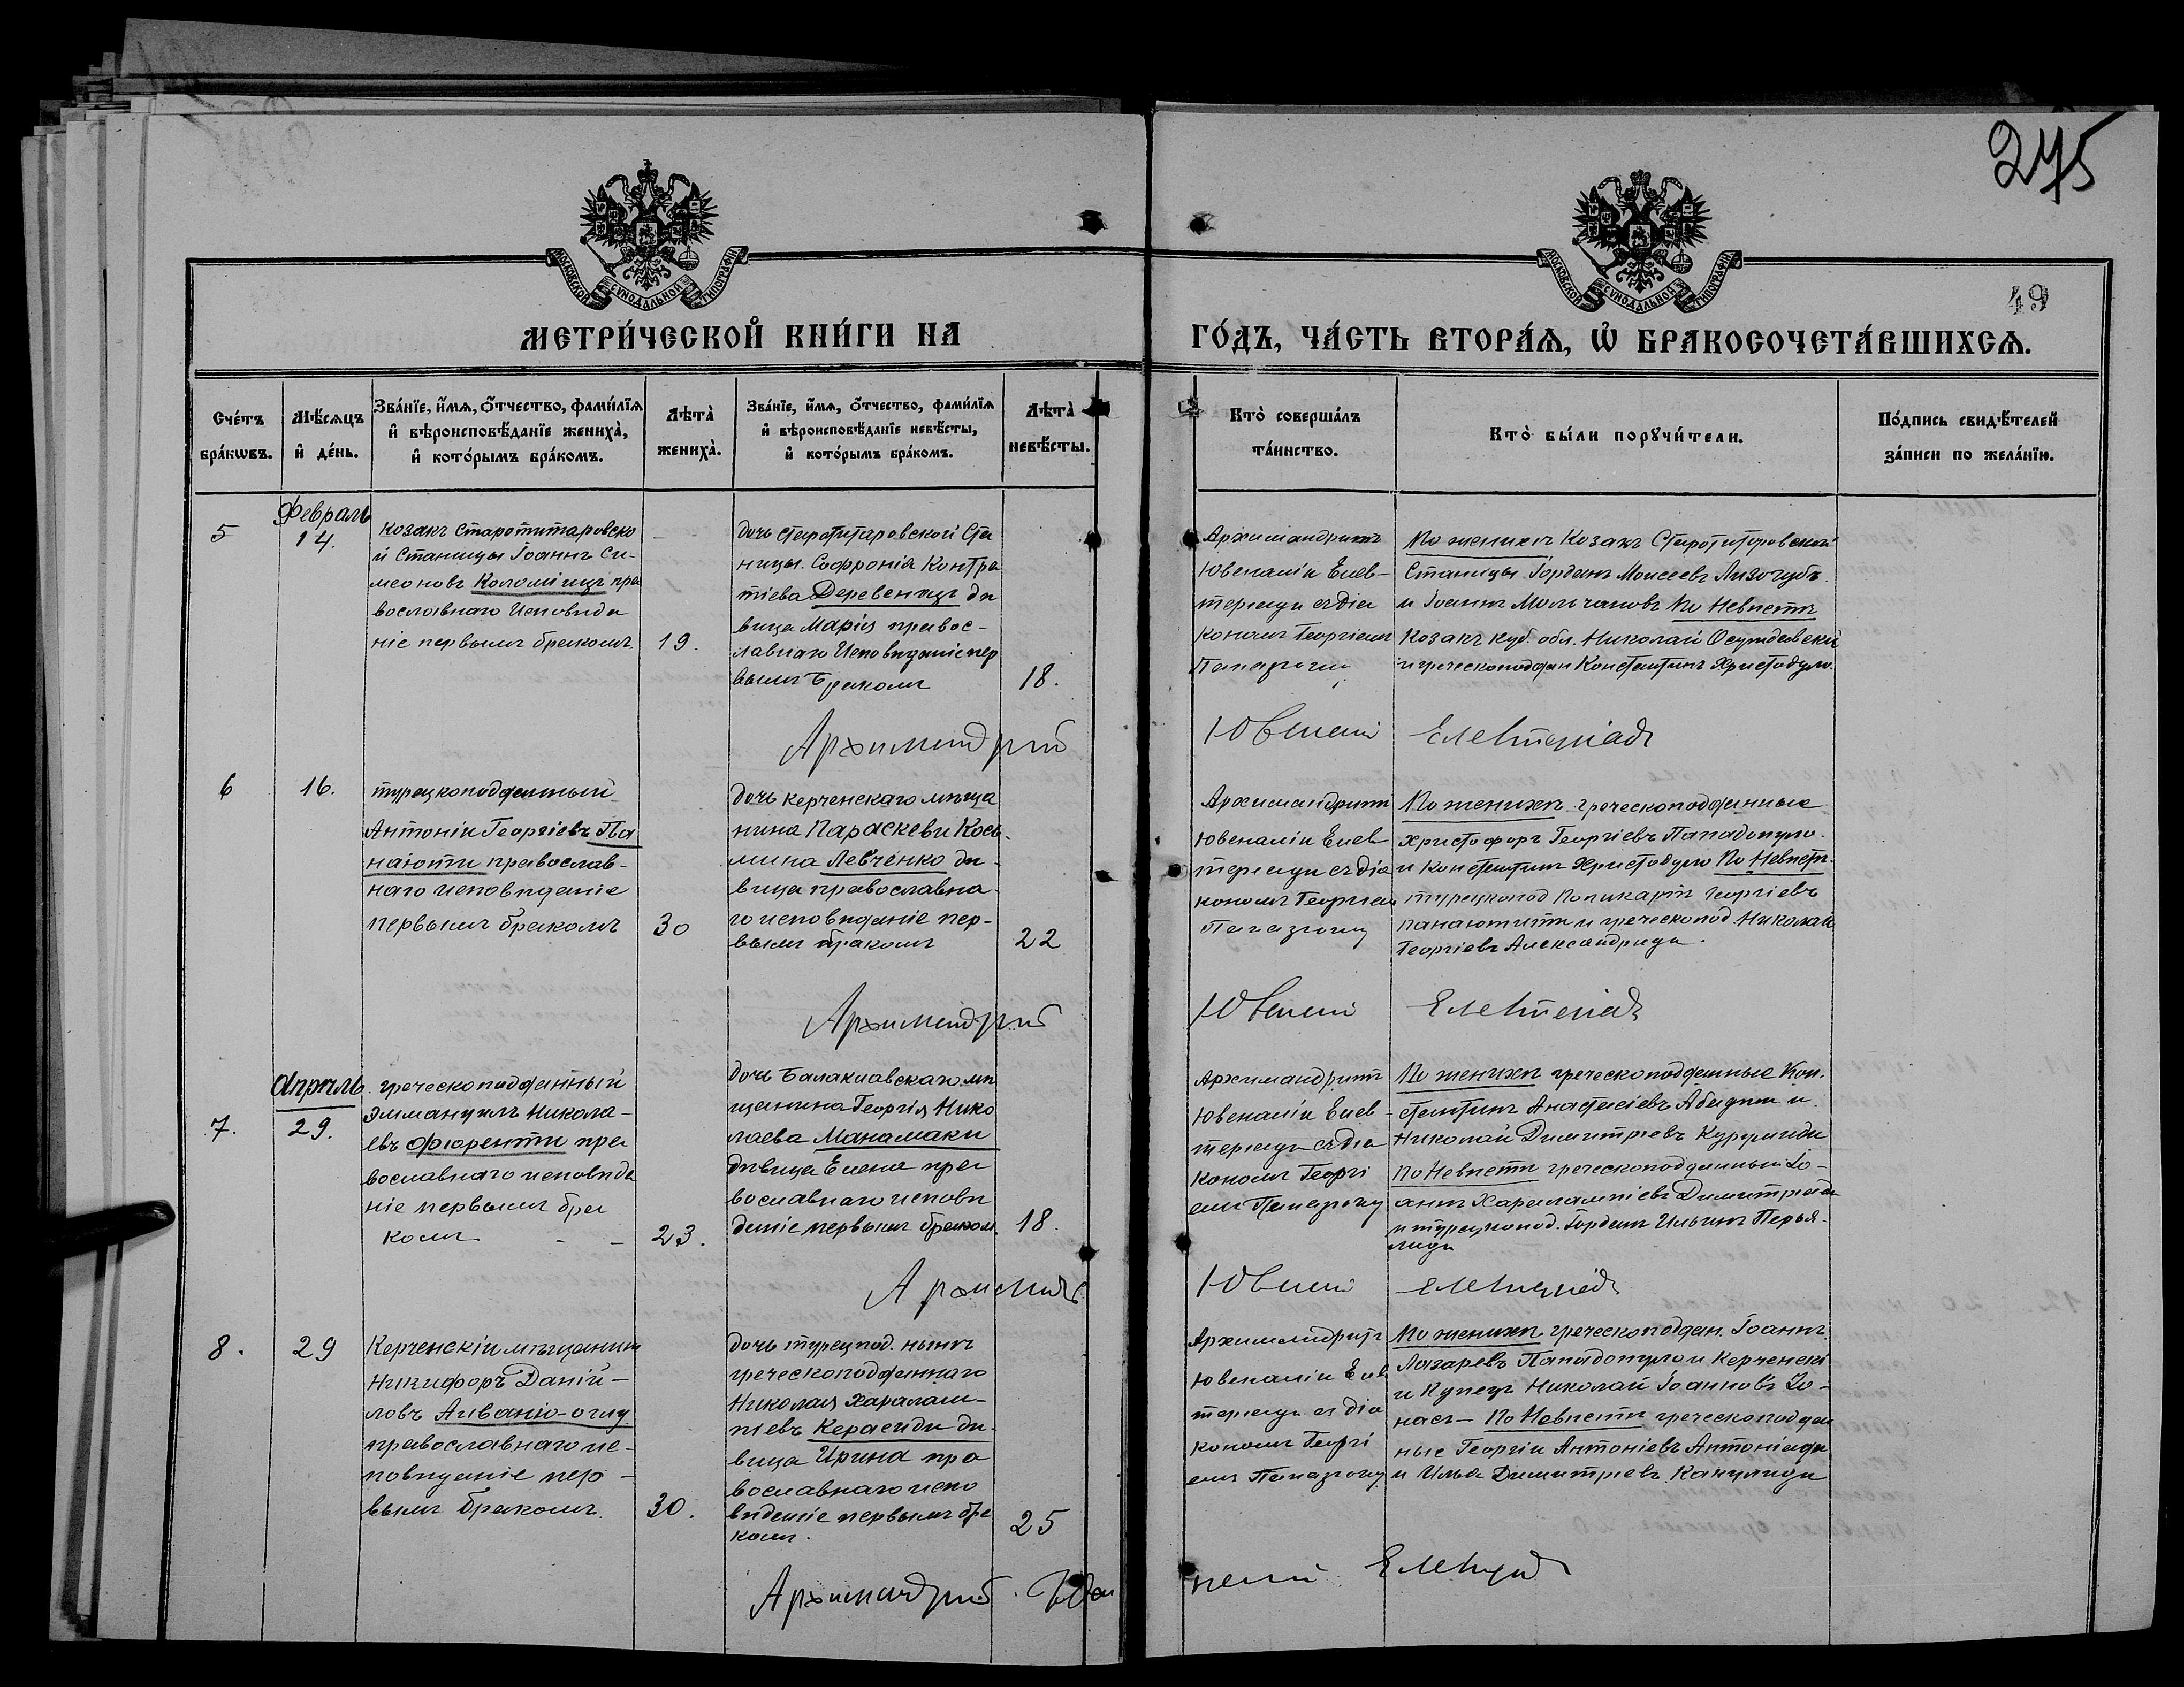 275
МОСКОВСКОЙ СѴНОДАЛЬНОЙ ТИПОГРАФІИ.
МОСКОВСКОЙ СѴНОДАЛЬНОЙ ТИПОГРАФІИ.
49
МЕТРИ́ЧЕСКОЙ КНИ́ГИ НА
ГО́ДЪ, ЧА́СТЬ ВТОРА́Ѧ, Ѽ БРАКОСОЧЕТА́ВШИХСѦ.
Сче́тъ
бра́кѡвъ.
Мѣ́сѧцъ
и҆ де́нь.
Зва́нїе, и҆́мѧ, ѻ҆́тчество, фами́лїѧ
и҆ вѣроисповѣ́данїе жениха̀,
и҆ кото́рымъ бра́комъ.
Лѣта̀
жениха̀.
Зва́нїе, и҆́мѧ, ѻ҆́тчество, фами́лїѧ
и҆ вѣроисповѣ́данїе невѣ́сты,
и҆ кото́рымъ бра́комъ.
Лѣта̀
невѣ́сты.
Кто̀ соверша́лъ
та́инство.
Кто̀ бы́ли порꙋчи́тели.
По́дпись свидѣ́телей
за́писи по жела́нїю.
5
Февраль
14.
Козакъ Старотитаровско
й Станицы Іоаннъ Си-
меоновъ Коломіицъ пра
вославнаго исповѣда
ніе первымъ бракомъ
19.
дочь Старотитаровской Ста
ницы. Софронія Контра
тіева Деревенецъ дѣ
вица Марія правос-
лавнаго Исповѣданіе пер
вымъ Бракомъ
18.
Архимандритъ
Ювеналій Елев-
теріади съ діа
кономъ Георгіемъ
Папазоглу
По женихѣ Козакъ Старотитаровской
Станицы Іорданъ Моисеевъ Лизогубъ
и Іоаннъ Молчановъ По Невѣстѣ
Козакъ куб. обл. Николай Осундовскій
и греческоподдан Константинъ Христодуло.
Архимандрит
Ювеналій Елевтеріадъ
6
16.
турецкоподданный
Антоній Георгіевъ Па
наіоти православ-
наго исповѣданіе
первымъ бракомъ
30
дочь керченскаго мѣща
нина Параскеви Кось-
мина Левченко дѣ-
вица православна
го исповѣданіе пер-
вымъ бракомъ
22
Архимандритъ
Ювеналій Елев
теріади съ діа
кономъ Георгіем
Папазоглу
По женихѣ греческоподданные
Христофоръ Георгіевъ Пападопуло.
и Константинъ Христодуло По Невѣстѣ.
турецкопод Поликарпъ Георгіевъ
панаіотити и греческопод. Николай
Георгіевъ Александриди.
Архимандрит
Ювеналій Елевтеріадъ
7.
Апрѣль
29.
греческоподданный
Эммануилъ Никола-
евъ Фіоренти пра
вославнаго исповѣда
ніе первымъ бра
комъ
23.
дочь Балаклавскаго мѣ
щанина Георгія Нико
лаева Манамаки
дѣвица Елена пра
вославнаго исповѣ
даніе первымъ браком.
18.
Архимандритъ
Ювеналій Елев-
теріади съ діа
кономъ Георгі
емъ Папазоглу
По женихѣ греческоподданные Кон.
стантинъ Анастасіевъ Абаджи и
Николай Димитріевъ Курумиди
По Невѣстѣ греческоподданный Іо-
аннъ Харалампіевъ Димитріади
и турецкопод. Іорданъ Ильинъ Перья-
лиди
Архиман
Ювеналій Елевтеріадъ
8.
29
Керченскій мѣщанинъ
Никифоръ Даній-
ловъ Аивазіо-оглу
православнаго ис-
повѣданіе пер-
вымъ бракомъ.
30.
дочь турецпод. нынѣ
греческоподданнаго
Николая Харалам-
піевъ Керасиди дѣ-
вица Ирина пра
вославнаго испо
вѣданіе первымъ бра
комъ.
25
Архимандритъ
Ювеналій Елев
теріади съ діа
кономъ Георгі
емъ Папазоглу
По женихѣ греческоподдан. Іоаннъ
Лазаревъ Пападопуло и Керченскі
й Купецъ Николай Іоанновъ Іо-
насъ- По Невѣстѣ греческоподдан
ные Георгій Антоніевъ Антоніади
и Илья Димитріевъ Какулиди
Архимандрит Юве
налій Елевтеріадъ